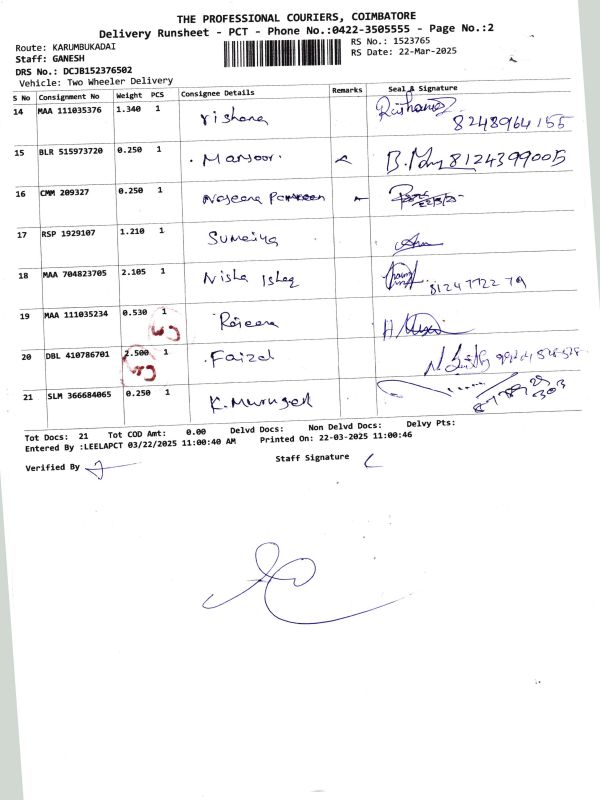 THE PROFESSIONAL COURIERS, COIMBATORE
Delivery Runsheet - PCT - Phone No.:0422-3505555 - Page No.:2
Route: KARUMBUKADAI
RS No.: 1523765
Staff: GANESH
RS Date: 22-Mar-2025
DRS No.: DCJB152376502
Vehicle: Two Wheeler Delivery
S No Consignment No Weight PCS Consignee Details Remarks Seal & Signature
14 MAA 111035376 1.340 1 rishana 8248964155
15 BLR 515973720 0.250 1 . Mansoor. 8124399005
16 CMM 209327 0.250 1 Naseena Parveen
17 RSP 1929107 1.210 1 Sumaiya
18 MAA 704823705 2.105 1 Nisha Ishaq 8124772279
19 MAA 111035234 0.530 1
20 DBL 410786701 2.500 1 . Faizal
21 SLM 366684065 0.250 1 K. Murugesh
Tot Docs: 21 Tot COD Amt: 0.00 Delvd Docs: Non Delvd Docs: Delvy Pts:
Entered By :LEELAPCT 03/22/2025 11:00:40 AM Printed On: 22-03-2025 11:00:46
Verified By
Staff Signature